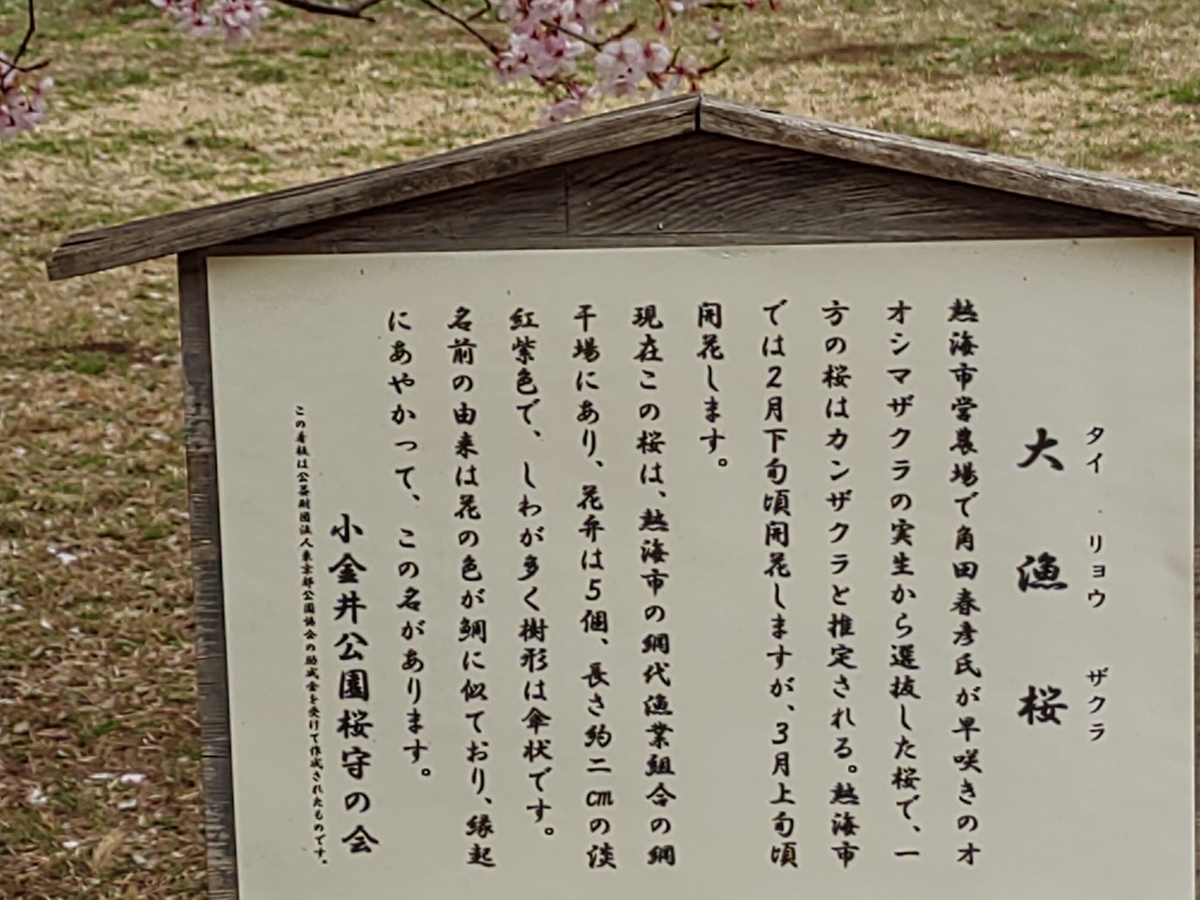 タイ リョウ ザクラ
大漁桜
熱海市営農場で角田春彦氏が早咲きのオ
オシマザクラの実生から選抜した桜で、一
方の桜はカンザクラと推定される。熱海市
では2月下旬頃開花しますが、3月上旬頃
開花します。
現在この桜は、熱海市の網代漁業組合の網
干場にあり、花弁は5個、長さ約二cmの淡
紅紫色で、しわが多く樹形は傘状です。
名前の由来は花の色が鯛に似ており、縁起
にあやかって、この名があります。
小金井公園桜守の会
この看板は公益財団法人東京都公園協会の助成金を受けて作成されたものです。